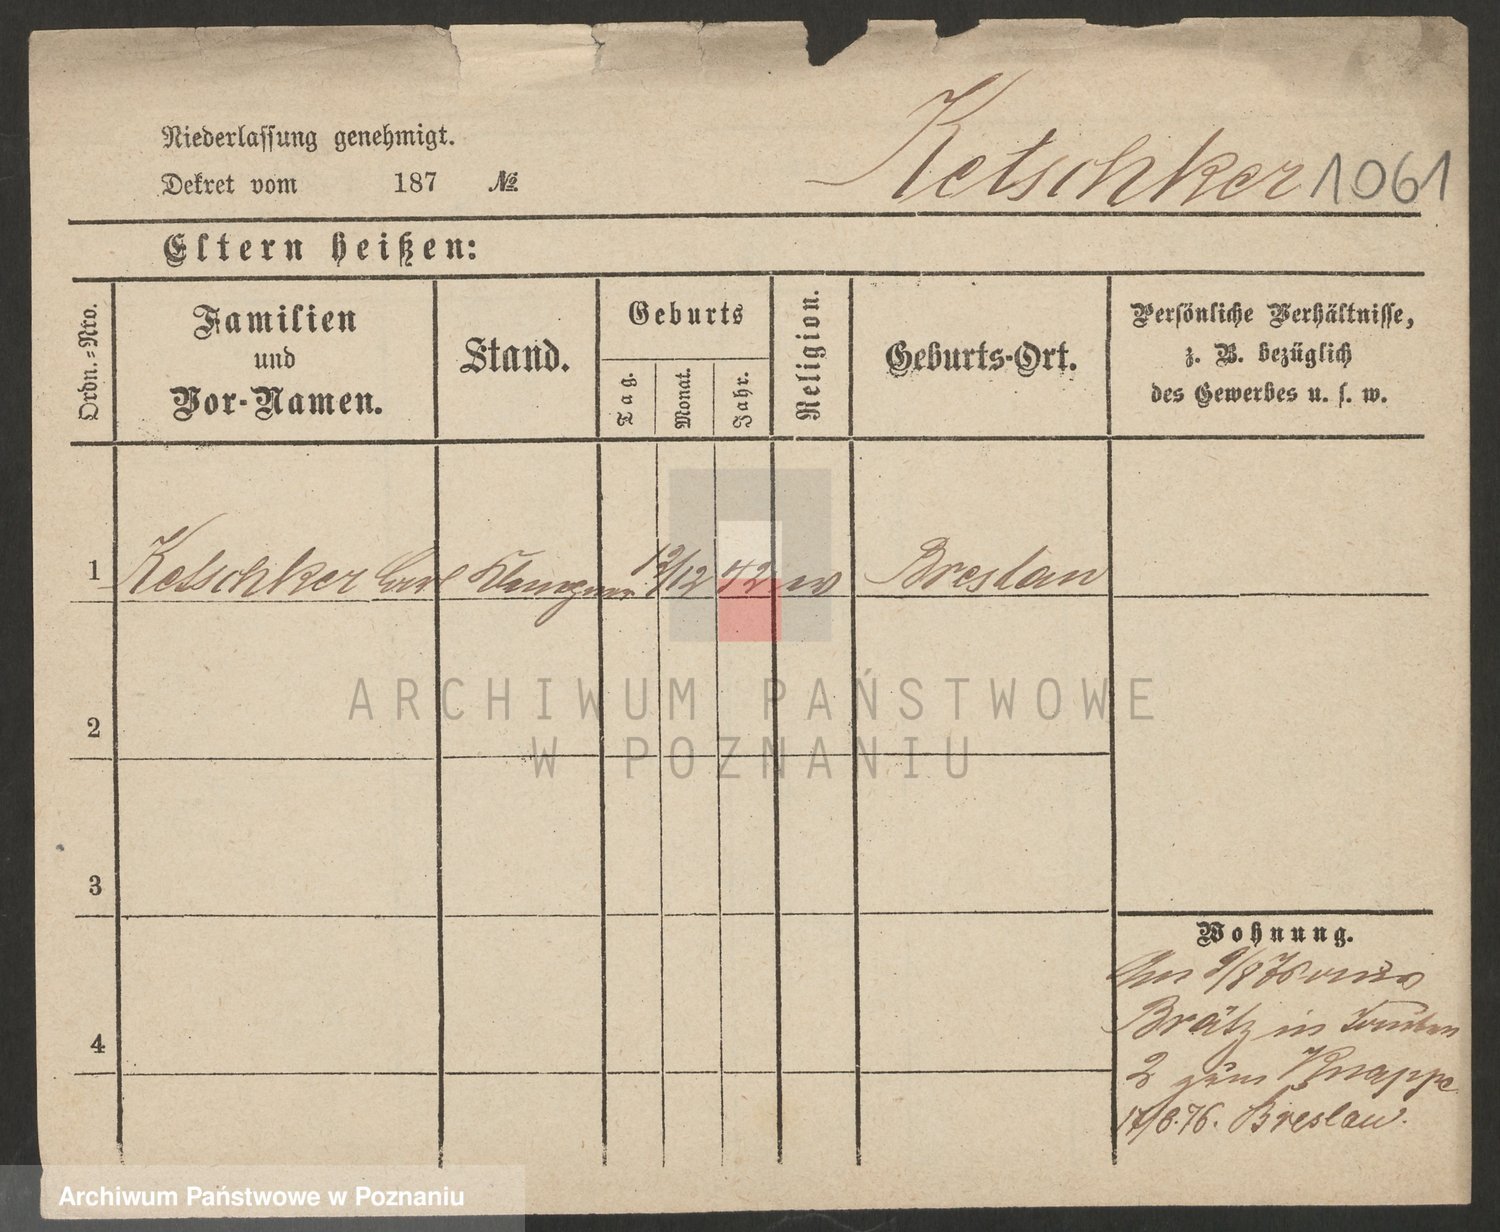 Niederlassung genehmigt.
Dekret vom 187 №
Ketschker 1061
Eltern heißen:
Ordn.-Nro.
Familien
und
Vor-Namen.
Stand.
Geburts
Tag.
Monat.
Jahr.
Religion.
Geburts-Ort.
Persönliche Verhältnisse,
z. B. bezüglich
des Gewerbes u. s. w.
1 Ketschker Carl 12/12 42 Breslau
2
3
4
Wohnung.
Am 9/8 76
Brätz in
2 zum Knappe
17/8.76. Breslau.
ARCHIWUM PAŃSTWOWE
W POZNANIU
Archiwum Państwowe w Poznaniu